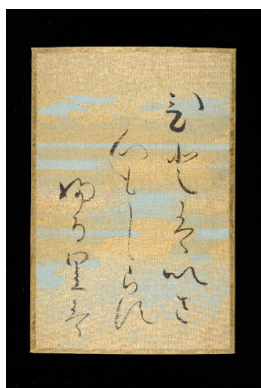 ひとはいさ
心もしらす
ふる里は